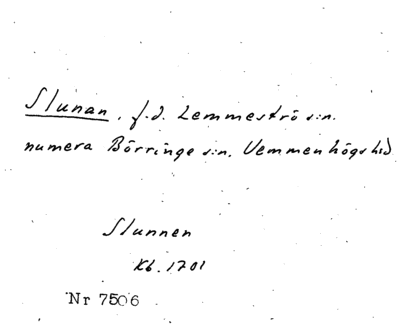 Slunan, f.d. Lemmeströ s:n.
numera Börringe s:n, Vemmenhögs hd
Slunnen
Kb. 1701
Nr 7506